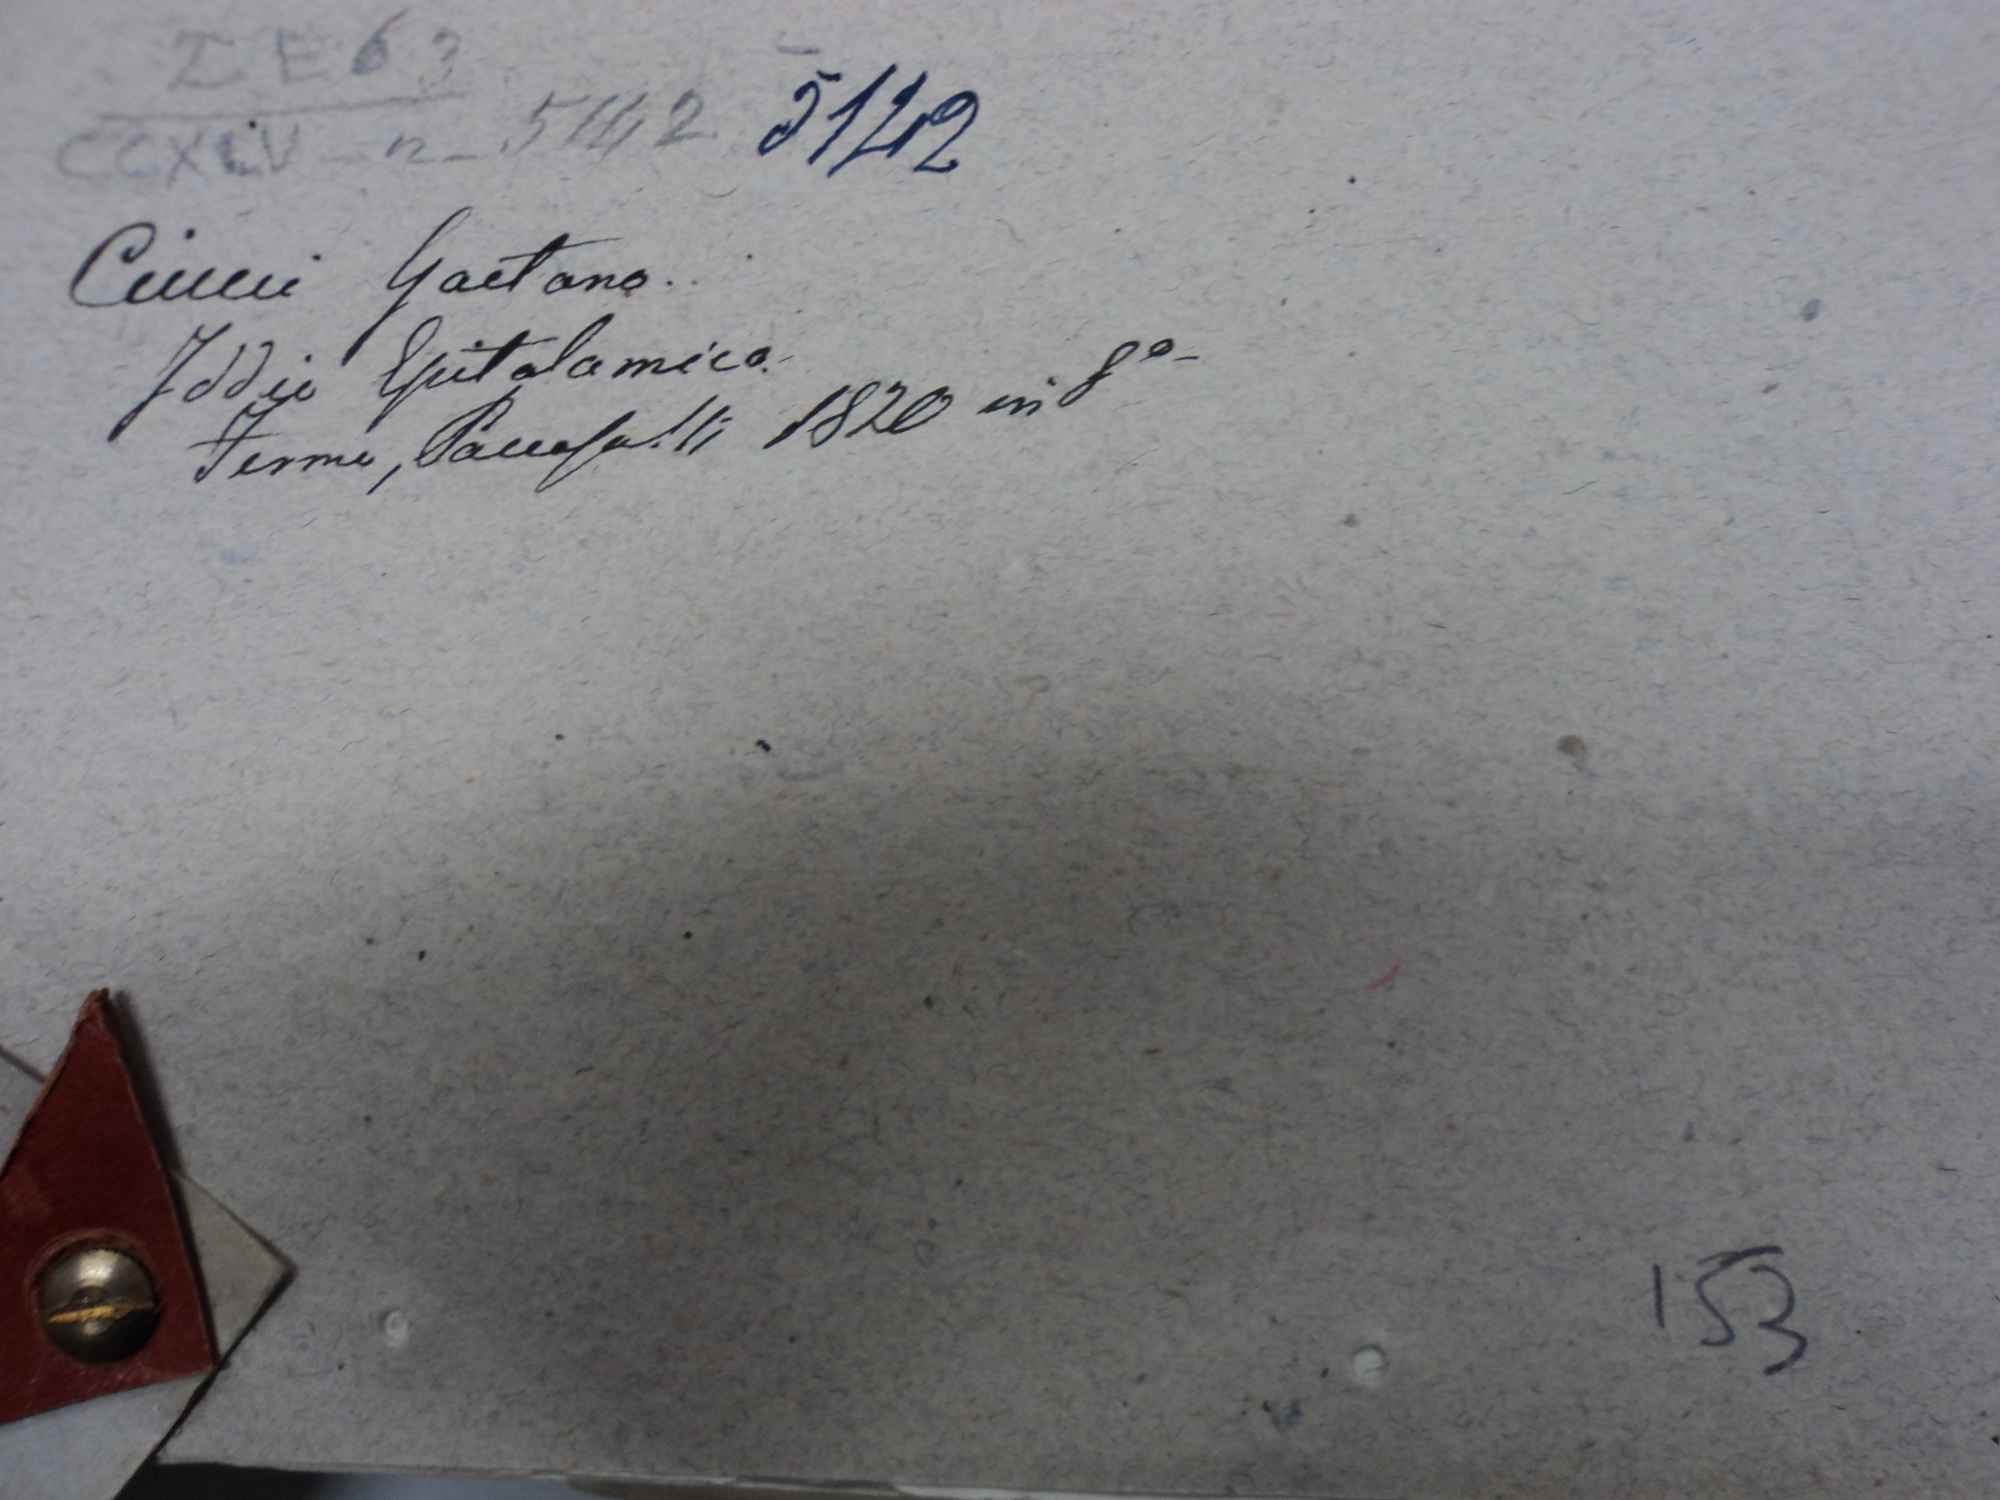 I E 6 3
CCXLV - n - 5142 5142
Gaetano.
Iddio Epitalamico.
Fermo, Paccasassi 1820 in 8º-
153